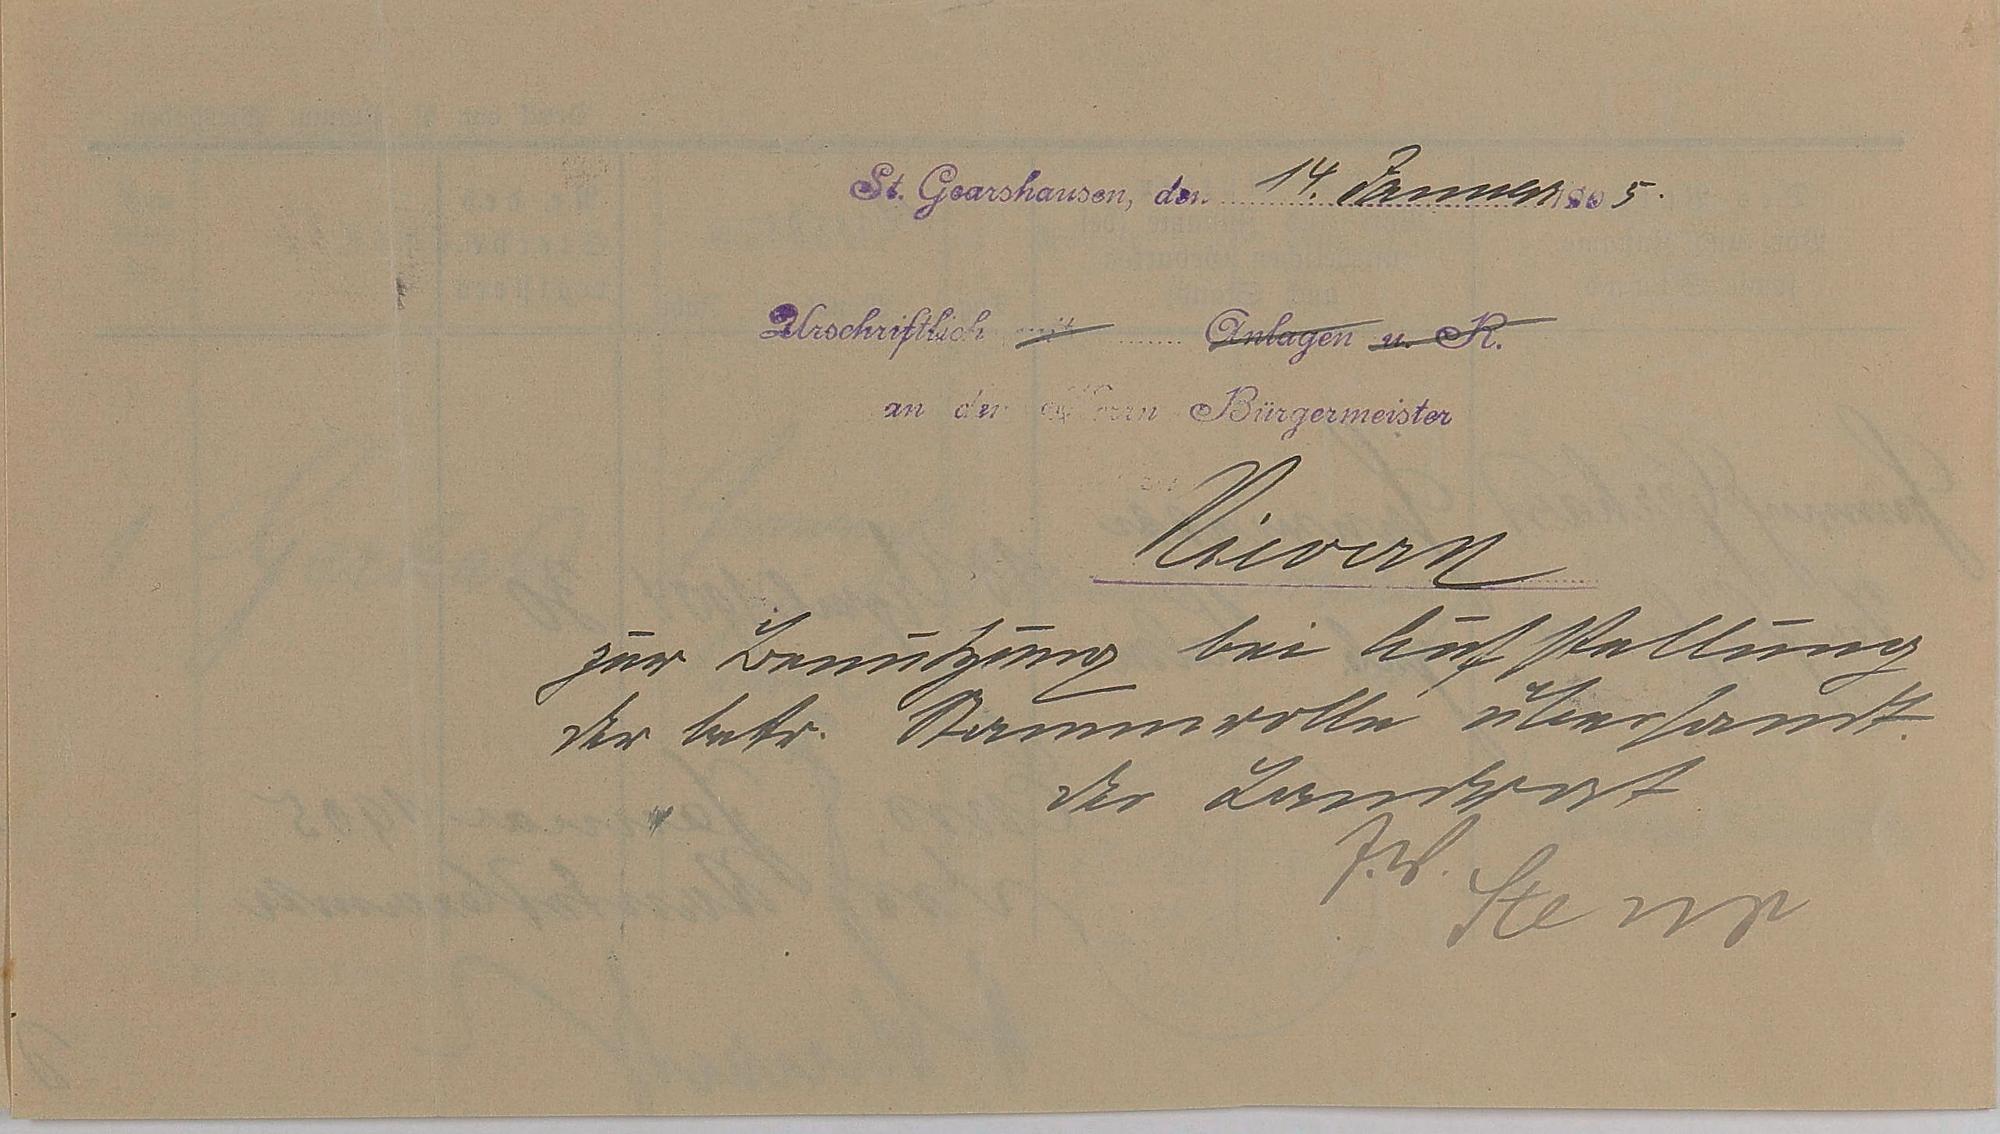 St. Goarshausen, den 14. Januar 1905.
Urschriftlich mit ....... Anlagen u. R.
an den Herrn Bürgermeister
Nievern
zur Benutzung bei Aufstellung
der betr. Stammrolle übersandt.
der Landrat
J. V.